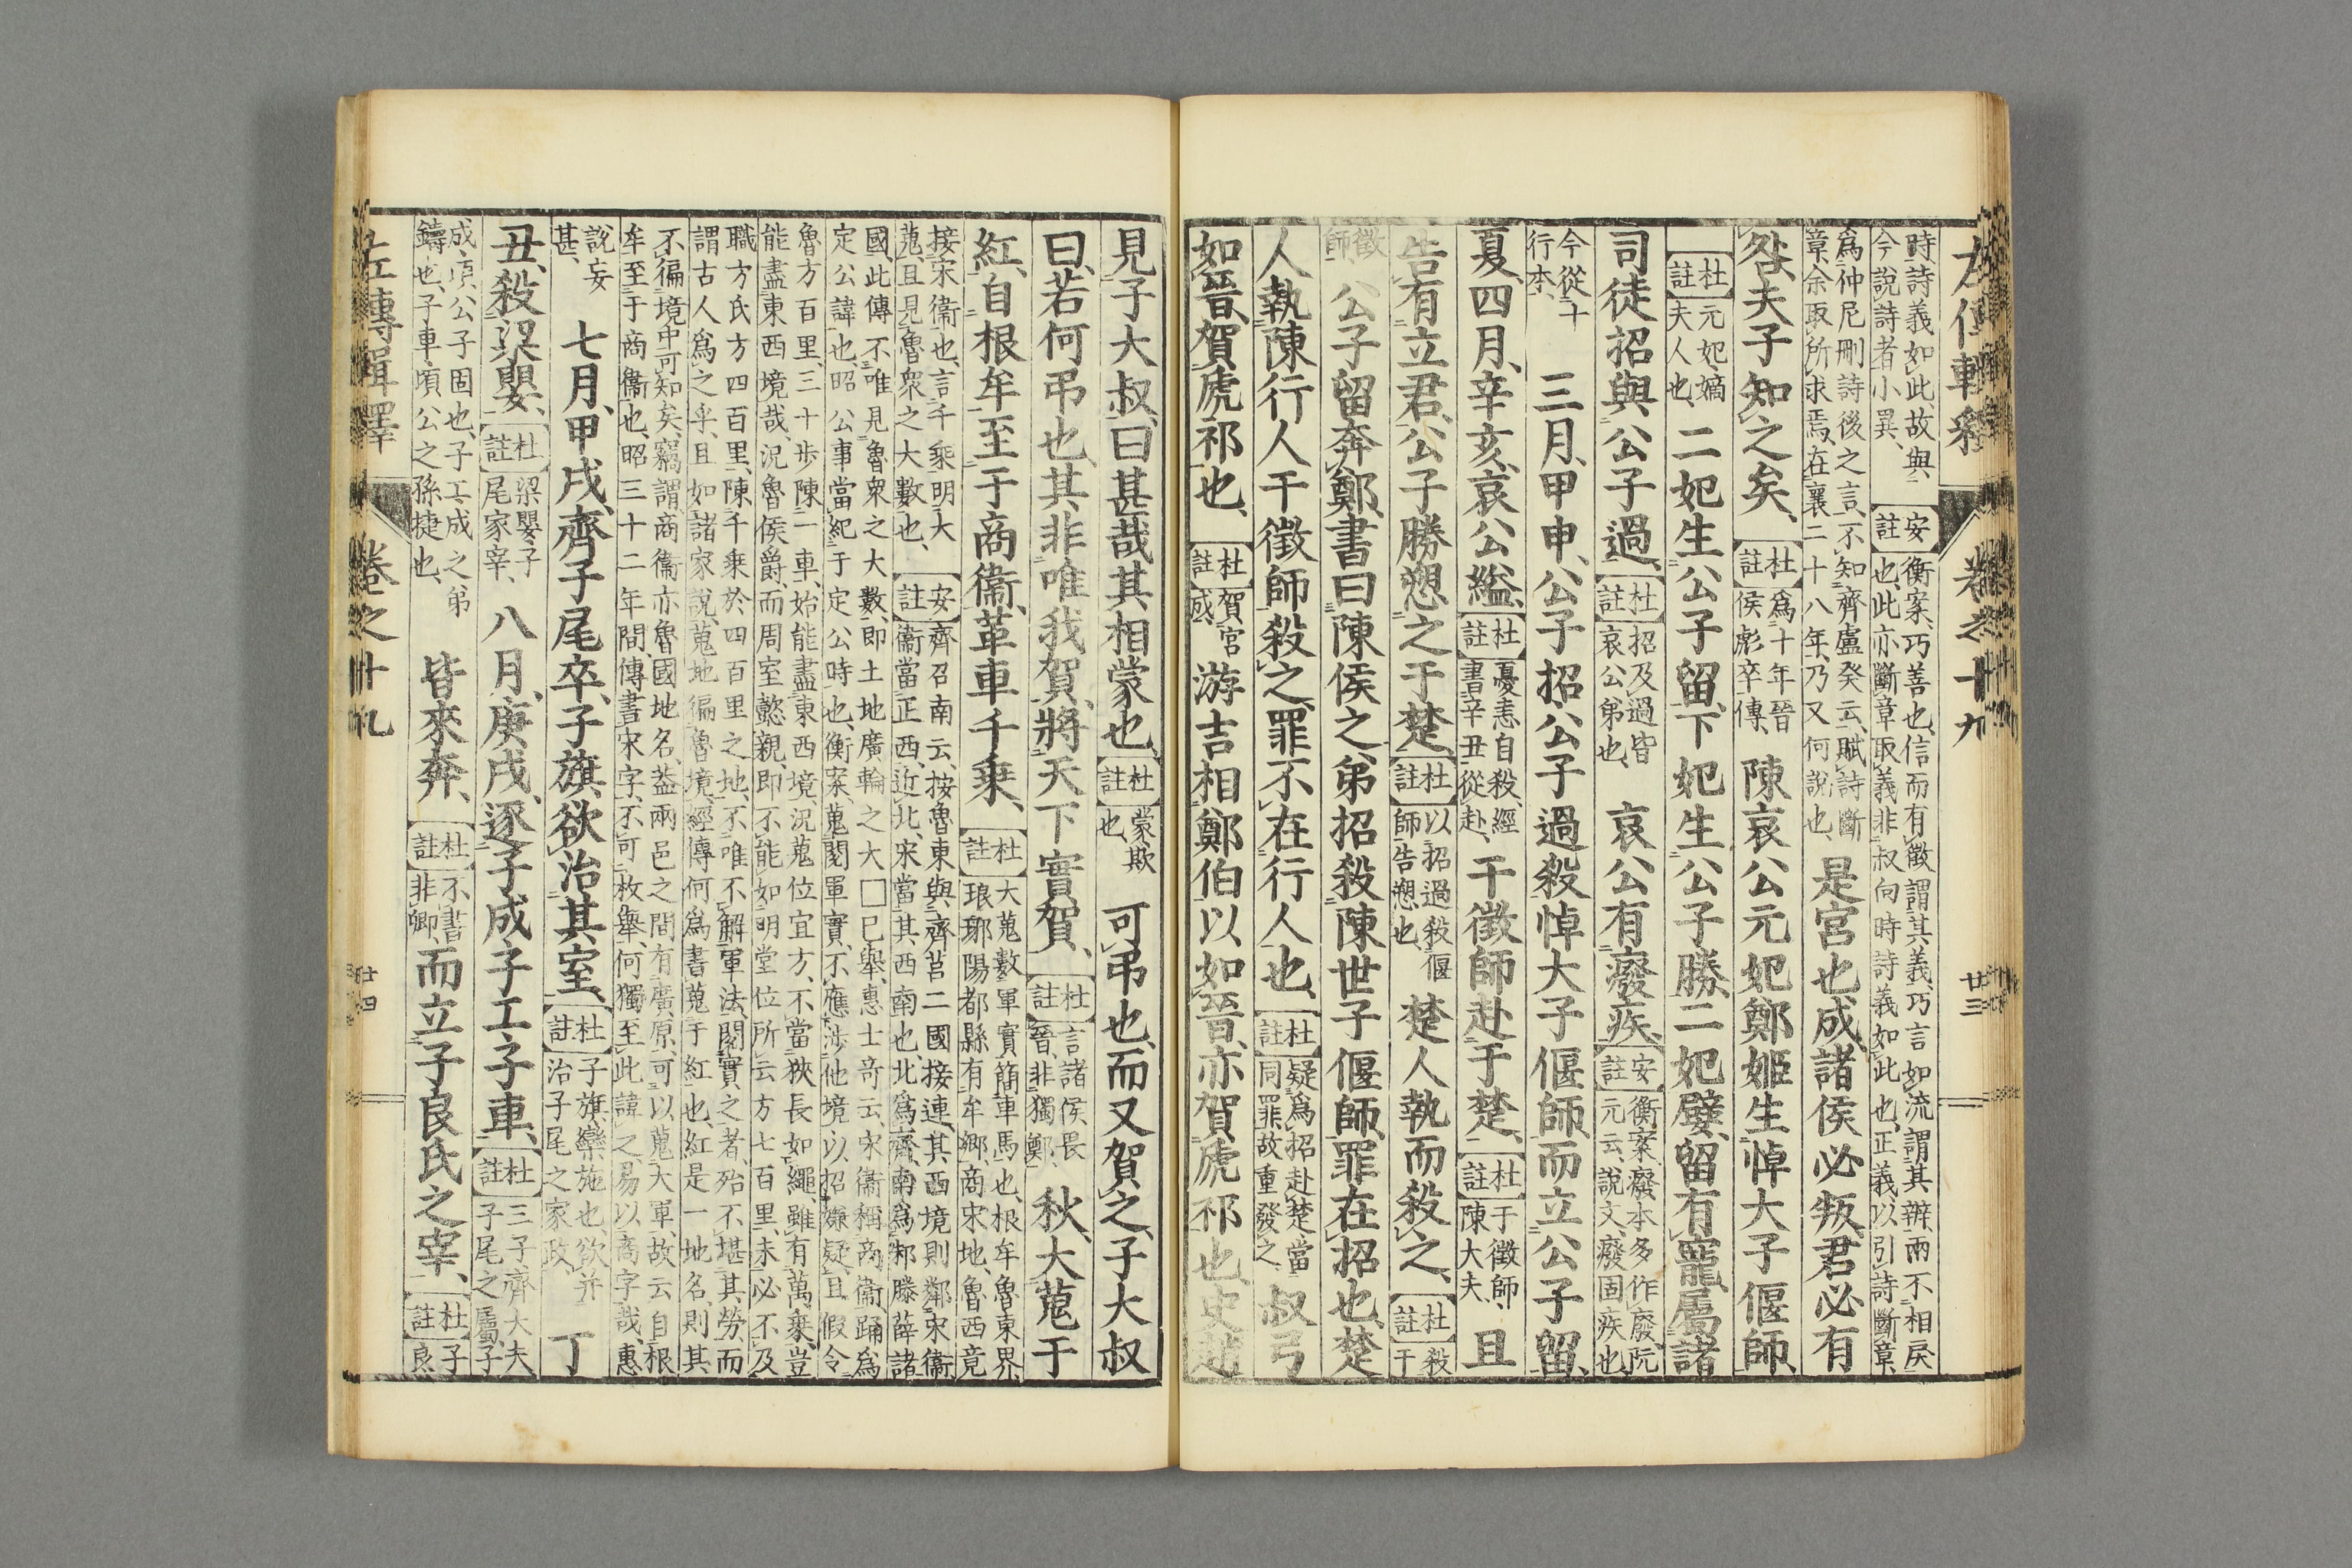 左傳輯釋 卷之十九 廿三
時詩義如此、故與今說詩者小異、 安註 衡案、巧善也、信而有徵、謂其義、巧言如流、謂其辯、兩不相戾也、此亦斷章取義、非叔向時詩義如此也、正義以引詩斷章、
爲仲尼刪詩後之言、不知齊盧癸云、賦詩斷章、余取所求焉、在襄二十八年、乃又何說也、 是宮也成、諸侯必叛、君必有
咎、夫子知之矣、 杜註 爲十年晉侯彪卒傳、 陳哀公元妃鄭姬生悼大子偃師、
杜註 元妃、嫡夫人也、 二妃生公子留、下妃生公子勝、二妃嬖、留有寵、屬諸
司徒招與公子過、 杜註 招及過、皆哀公弟也、 哀公有癈疾、 安註 衡案、癈本多作廢、阮元云、說文、癈固疾也、
今從十行本、 三月、甲申、公子招、公子過殺悼大子偃師、而立公子留、
夏、四月、辛亥、哀公縊、 杜註 憂恚自殺、經書辛丑、從赴、 干徵師赴于楚、 杜註 干徵師、陳大夫、 且
告有立君、公子勝愬之于楚、 杜註 以招過殺偃師告愬也、 楚人執而殺之、 杜註 殺干
徵師 公子留奔鄭、書曰陳侯之弟招殺陳世子偃師、罪在招也、楚
人執陳行人干徵師殺之、罪不在行人也、 杜註 疑爲招赴楚、當同罪、故重發之、 叔弓
如晉、賀虒祁也、 杜註 賀宮成、 游吉相鄭伯以如晉、亦賀虒祁也、史趙
見子大叔、曰、甚哉其相蒙也、 杜註 蒙、欺也、 可弔也、而又賀之、子大叔
曰、若何弔也、其非唯我賀、將天下實賀、 杜註 言諸侯畏晉、非獨鄭、 秋、大蒐于
紅、自根牟至于商衞、革車千乘、 杜註 大蒐、數軍實、簡車馬也、根牟、魯東界、琅邪陽都縣有牟鄉、商、宋地、魯西竟
接宋衞也、言千乘、明大蒐、且見魯衆之大數也、 安註 齊召南云、按魯東與齊莒二國接連、其西境則鄰宋衞、衞當正西、近北、宋當其西南也、北爲齊、南爲邾滕薛諸
國、此傳不唯見魯衆之大數、即土地廣輪之大□已舉、惠士奇云、宋衞稱商衞、踊爲定公諱也、昭公事當紀于定公時也、衡案、蒐閱軍實、不應涉他境以招嫌疑、且假令
魯方百里、三十步陳一車、始能盡東西境、況蒐位宜方、不當狹長如繩、雖有萬乘、豈能盡東西境哉、況魯侯爵、而周室懿親、即不能如明堂位所云方七百里、未必不及
職方氏方四百里、陳千乘於四百里之地、不唯不解軍法、閱實之者、殆不堪其勞、而謂古人爲之乎、且如諸家說、蒐地徧魯境、經傳何爲書蒐于紅也、紅是一地名、則其
不徧境中可知矣、竊謂、商衞亦魯國地名、蓋兩邑之間有廣原、可以蒐大軍、故云自根牟至于商衞也、昭三十二年間、傳書宋字、不可枚舉、何獨至此諱之、易以商字哉、惠
說妄甚、 七月、甲戌、齊子尾卒、子旗欲治其室、 杜註 子旗、欒施也、欲并治子尾之家政、 丁
丑、殺梁嬰、 杜註 梁嬰、子尾家宰、 八月、庚戌、逐子成子工子車、 杜註 三子、齊大夫、子尾之屬、子
成、頃公子固也、子工、成之弟鑄也、子車、頃公之孫捷也、 皆來奔、 杜註 不書、非卿、 而立子良氏之宰、 杜註 子良、
左傳輯釋 卷之十九 廿四